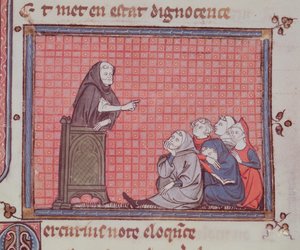 Et met en estat dignocence
Mercurius note eloquẽce